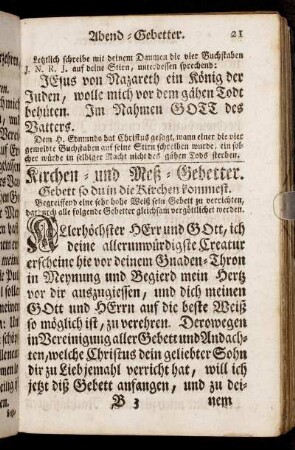 Abend-Gebetter. 21
Letztlich schreibe mit deinem Daumen die vier Buchstaben
J. N. R. J. auf deine Stirn, unterdessen sprechend:
JEsus von Nazareth ein König der
Juden, wolle mich vor dem gähen Todt
behüten. Im Nahmen GOTT des
Vatters.
Dem H. Edmundo hat Christus gesagt, wann einer die vier
gemeldte Buchstaben auf seine Stirn schreiben wurde, ein sol-
cher würde in selbiger Nacht nicht des gähen Tods sterben.
Kirchen- und Meß-Gebetter.
Gebett so du in die Kirchen kommest.
Begreiffend eine sehr hohe Weiß sein Gebett zu verrichten,
dardurch alle folgende Gebetter gleichsam vergöttlichet werden.
ALlerhöchster HErr und GOtt, ich
deine allerunwürdigste Creatur
erscheine hie vor deinem Gnaden-Thron
in Meynung und Begierd mein Hertz
vor dir auszugiessen, und dich meinen
GOtt und HErrn auf die beste Weiß
so möglich ist, zu verehren. Derowegen
in Vereinigung aller Gebett und Andach-
ten, welche Christus dein geliebter Sohn
dir zu Liebe jemahl verricht hat, will ich
jetzt diß Gebett anfangen, und zu dei-
B 3 nem